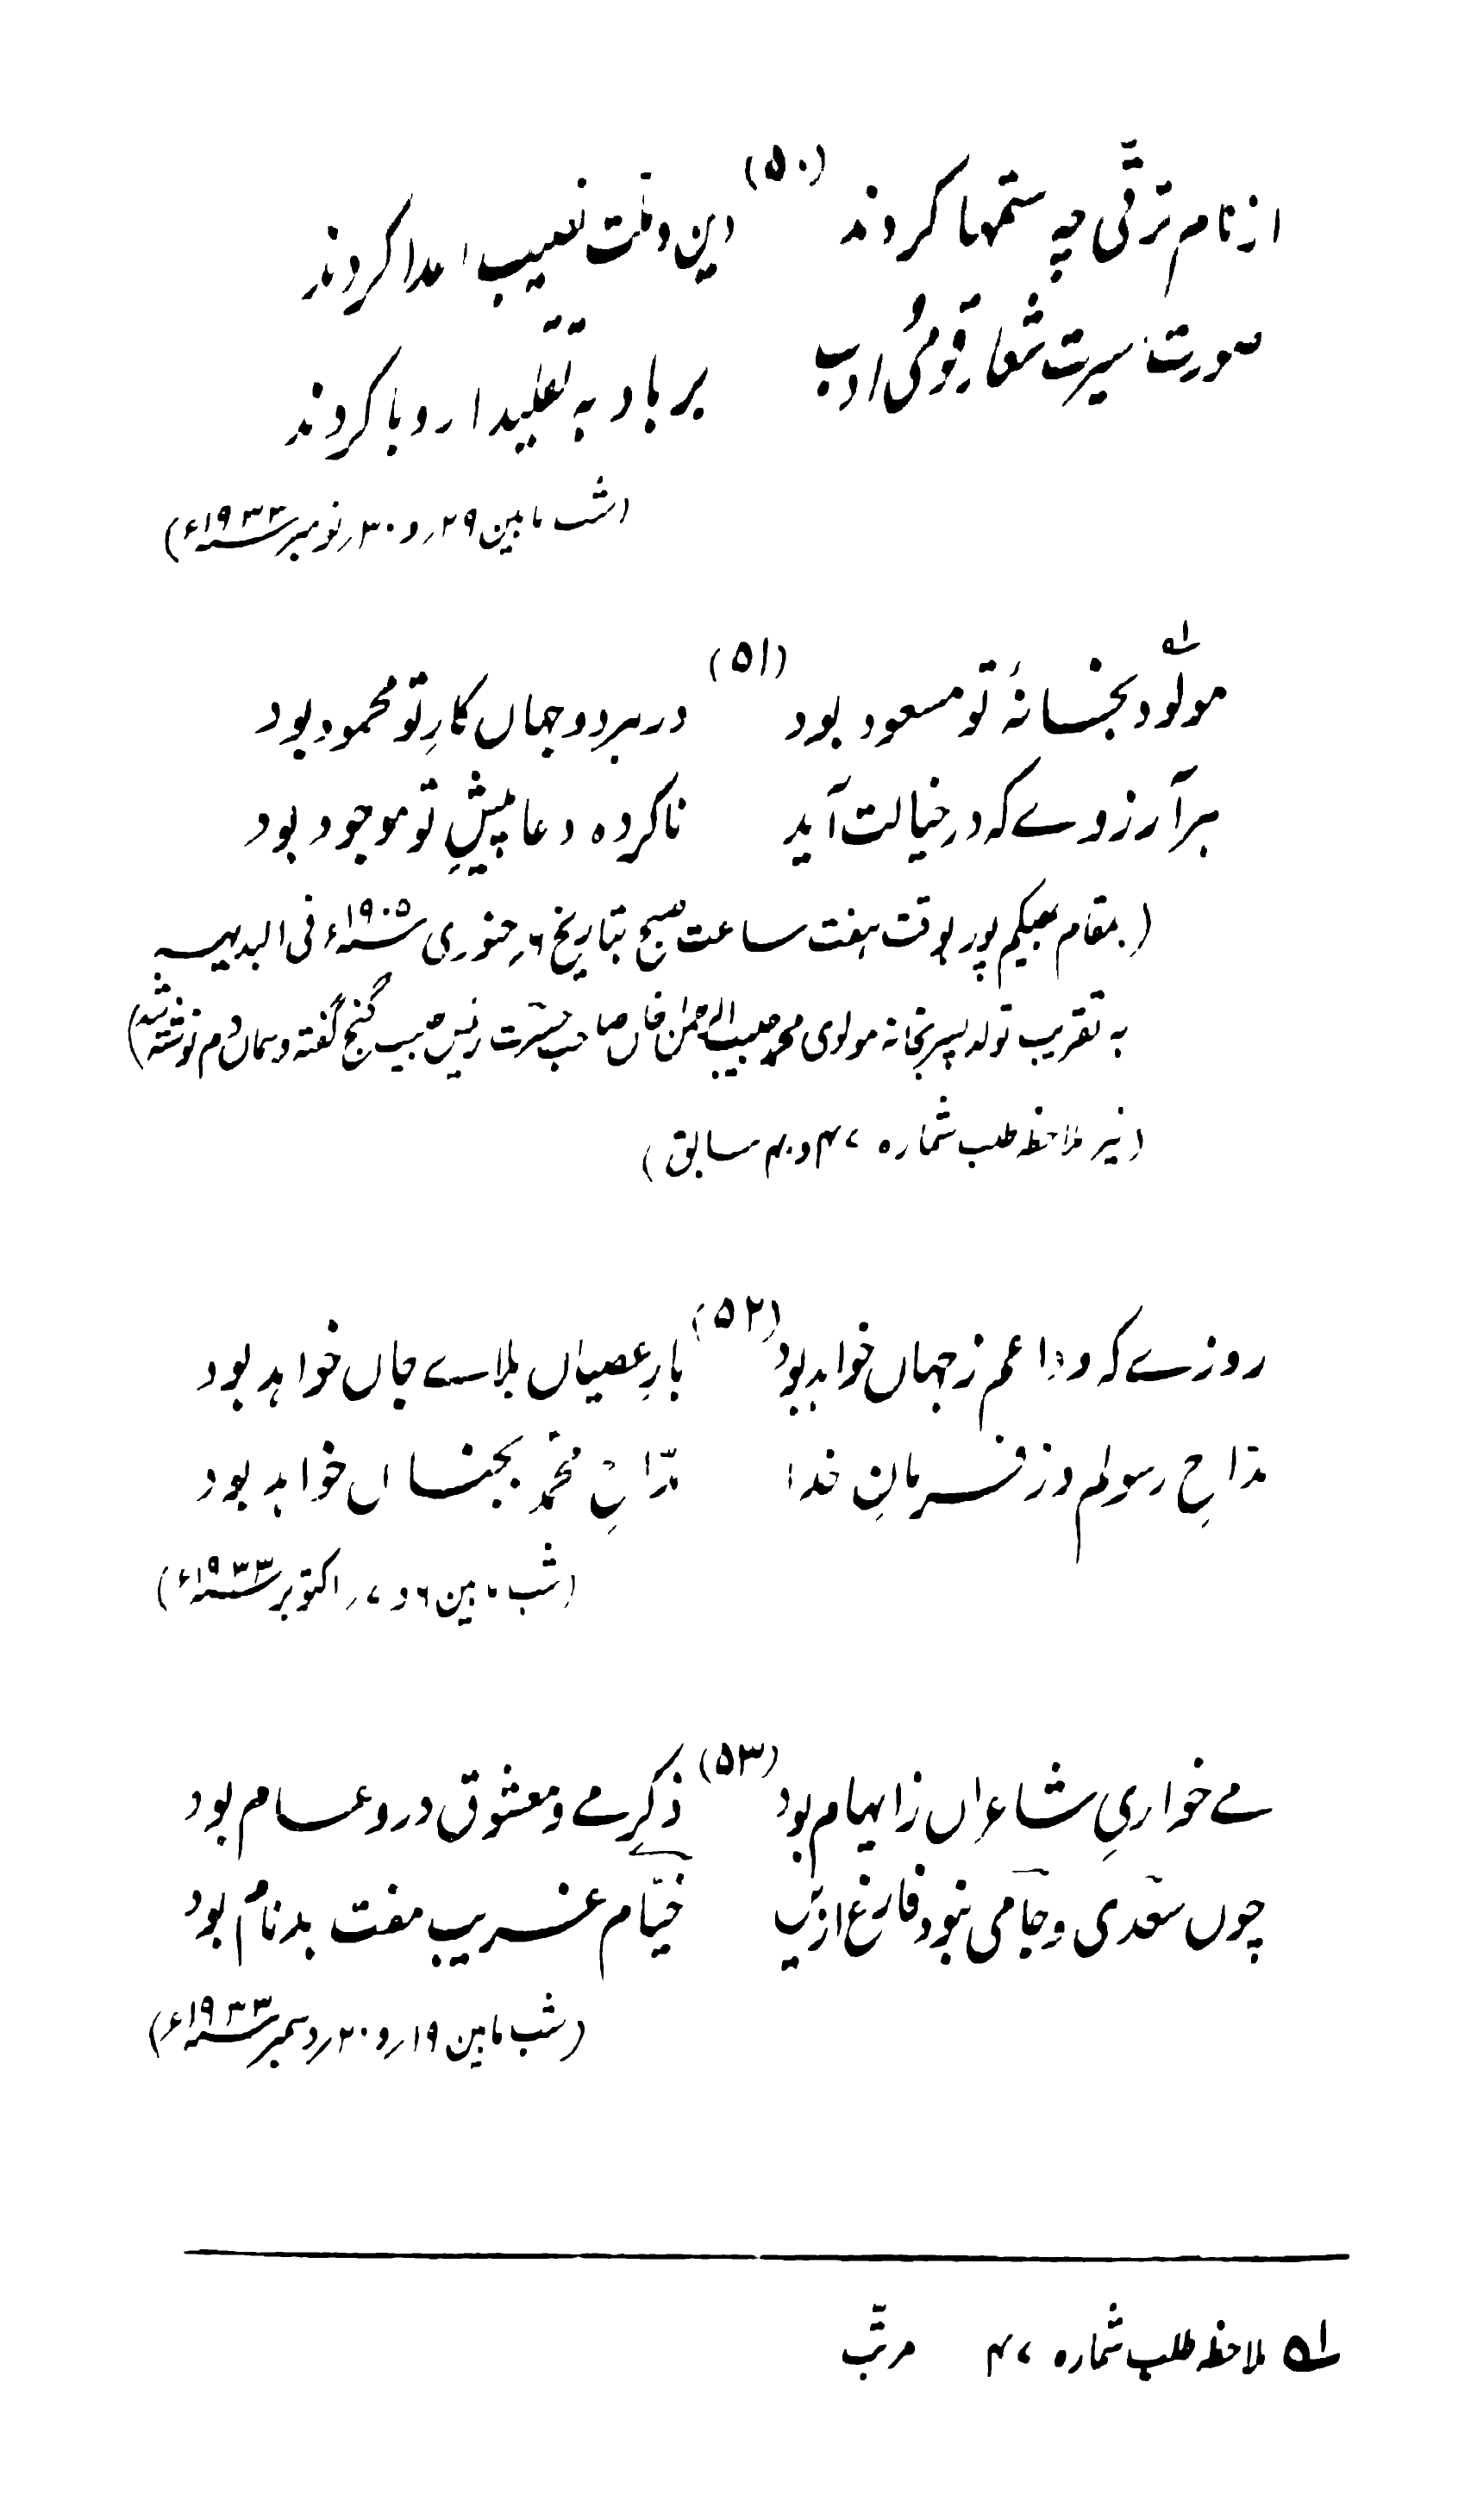 (۵۰)
از نام ترقی چه ستمها کردند دین و ملت نصیب اعدا کردند
صورت سیرت شعار قومی ادب برباد به تقلید اروپا کردند
(شب مابین ۲۹ و ۳۰ نومبر ۱۹۳۳ء)
(۵۱)
مولود بخانهٔ تو مسعود بود در هر دو جهاں کارِ تو محمود بود
هر آرزوے که در خیالت آید ناکرده دعا پیشِ تو موجود بود
(بمقام بھیکم پور بوقت هفت ساعت صبح بتاریخ ۶ جنوری ۱۹۰۵ء فی البدیهه
به تقریب تولد پسر بخانه مولوی محمد حبیب الرحمٰن خاں صاحب حسرت رئیس حبیب گنج گفته و هماں دم نوشته شد)
(نیز ملاحظه طلب شماره ۴۷ و ۸۰ سابق)
(۵۲)
روزے که وداعم ز جهاں خواهد بود بارِ عصیاں بلاے جاں خواهد بود
مداحِ رسولم و ز فرمانِ خدا مداحِ محمد بجناں خواهد بود
(شب مابین ۶ و ۷ اکتوبر ۱۹۳۳ء)
(۵۳)
مے خواریِ شاعراں ز ایهام بود ذکرِ مے و معشوق درو عام بود
چوں سعدی و جامی نبود فارغ ازیں خیام غریب مفت بدنام بود
(شب مابین ۱۹ و ۲۰ دسمبر ۱۹۳۳ء)
۵۱ ملاحظه طلب شماره ۴۷ مرتب